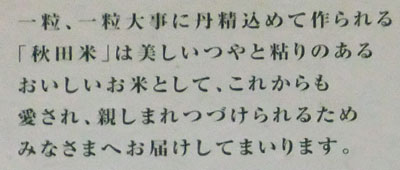 一粒、一粒大事に丹精込めて作られる
「秋田米」は美しいつやと粘りのある
おいしいお米として、これからも
愛され、親しまれつづけられるため
みなさまへお届けしてまいります。